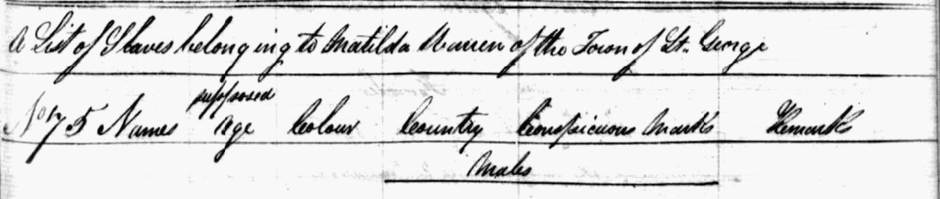 A List of Slaves belonging to Matilda of the Town of St. George
No. 75 Names supposed Age Colour Country Conspicuous Marks Remarks
Males